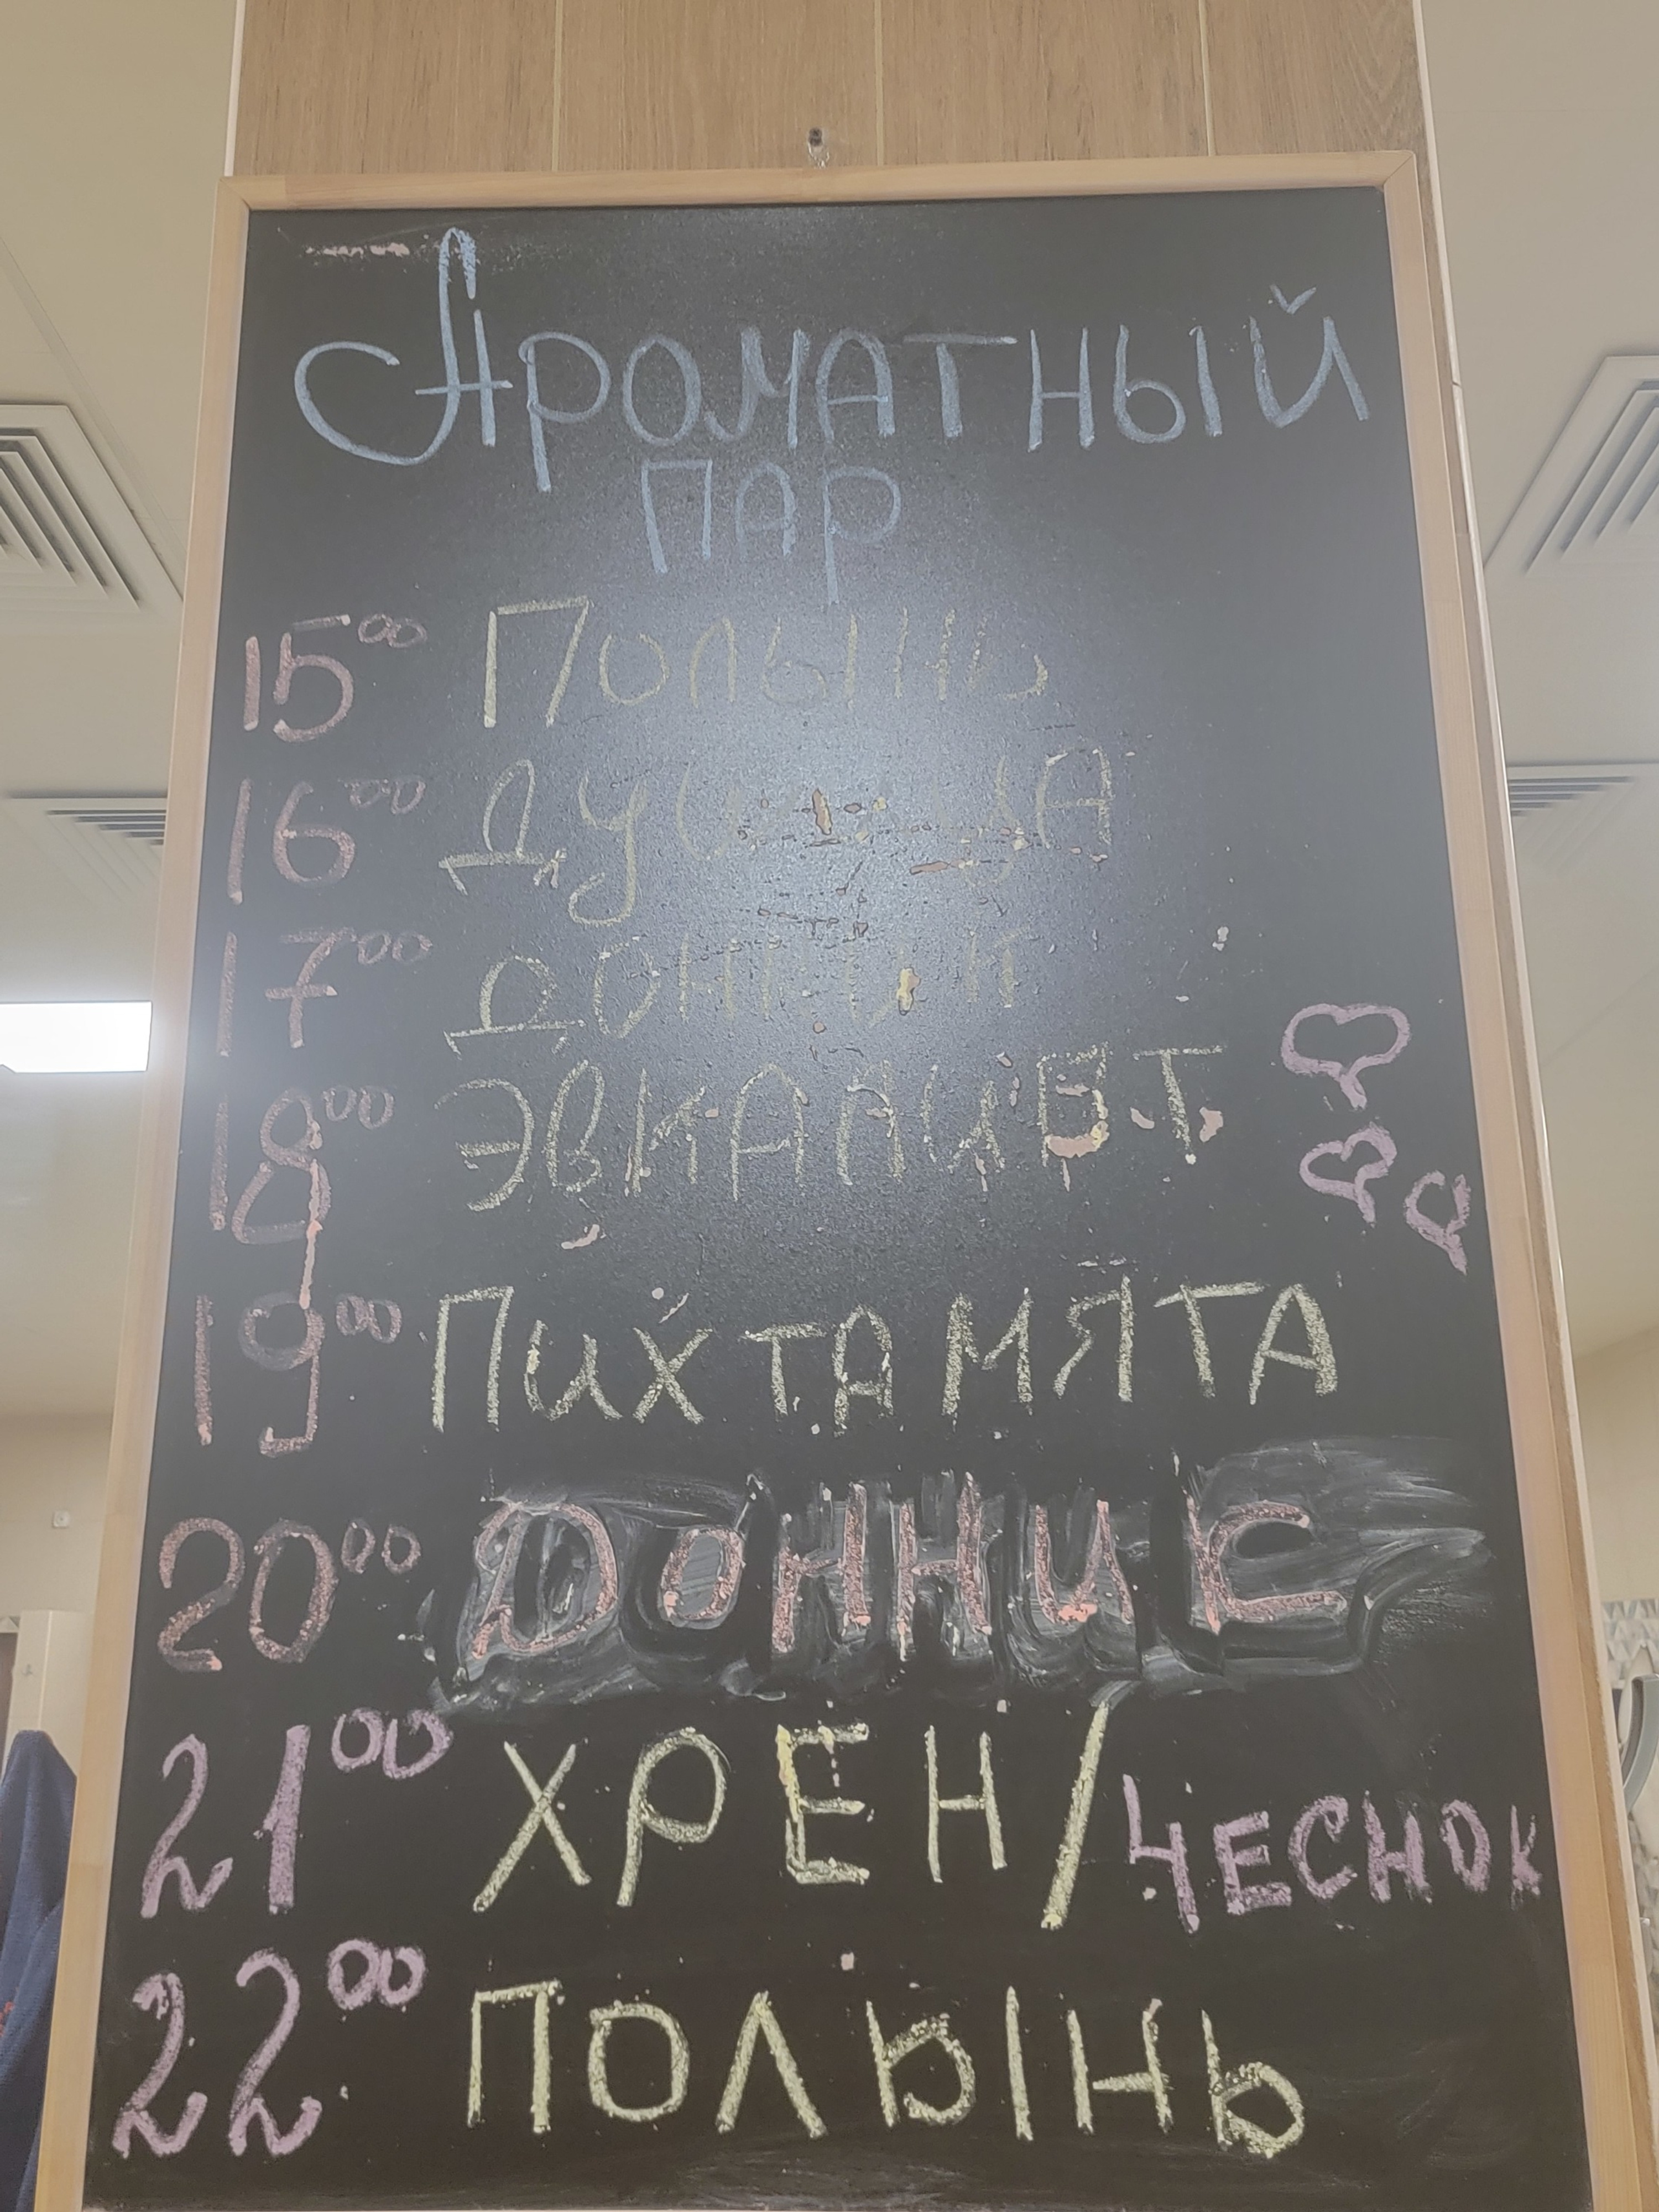 Ароматный
пар
15⁰⁰ Полынь
16⁰⁰ Душица
17⁰⁰ Донник
18⁰⁰ Эвкалипт
19⁰⁰ Пихта мята
20⁰⁰ Донник
21⁰⁰ Хрен/чеснок
22⁰⁰ Полынь